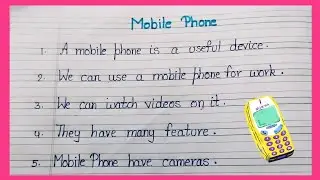 Mobile Phone
1. A mobile phone is a useful device.
2. We can use a mobile phone for work.
3. We can watch videos on it.
4. They have many feature.
5. Mobile Phone have cameras.